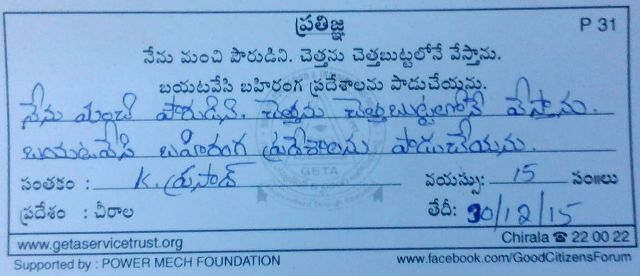 ప్రతిజ్ఞ P 31
నేను మంచి పౌరుడిని. చెత్తను చెత్తబుట్టలోనే వేస్తాను.
బయటవేసి బహిరంగ ప్రదేశాలను పాడుచేయను.
నేను మంచి పౌరుడిని. చెత్తను చెత్తబుట్టలోనే వేస్తాను.
బయటవేసి బహిరంగ ప్రదేశాలను పాడుచేయను.
GETA
సంతకం : K. ప్రసాద్ వయస్సు: 15 సం॥లు
ప్రదేశం : చీరాల తేదీ: 30/12/15
www.getaservicetrust.org Chirala ☎ 22 00 22
Supported by : POWER MECH FOUNDATION www.facebook.com/GoodCitizensForum